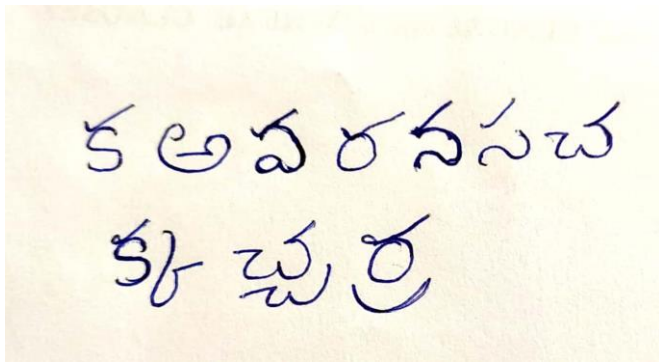 క అ వ ర న స చ
క్క చ్చ ర్ర